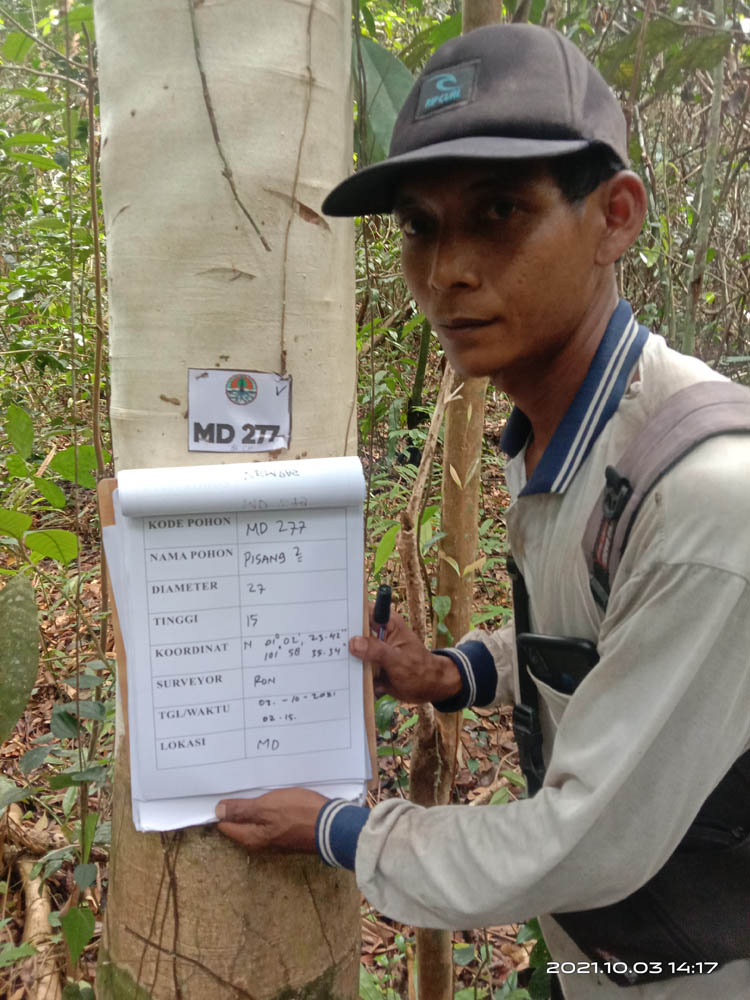 RIP CURL
MD 277
KODE POHON MD 277
NAMA POHON PISANG 2
DIAMETER 27
TINGGI 15
KOORDINAT N 01° 02', 23.42"
101° 58' 35.34"
SURVEYOR RON
TGL/WAKTU 03. -10-2021
02.15.
LOKASI MD
2021.10.03 14:17